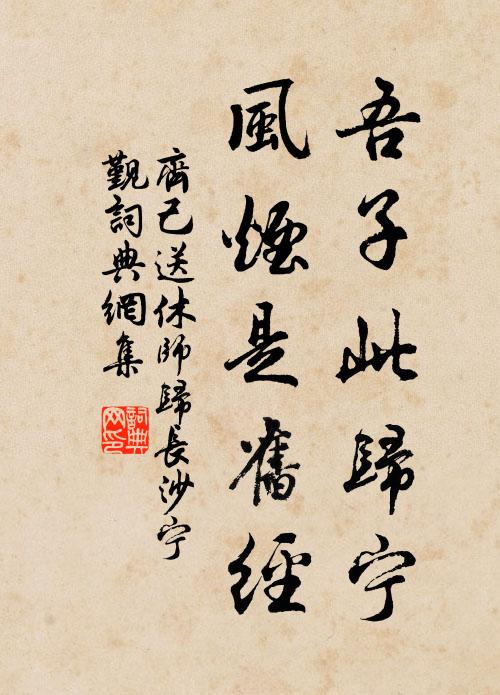 吾子此歸宁
風煙是舊經
齊己送休師歸長沙宁
覲詞典網集
詞典网印